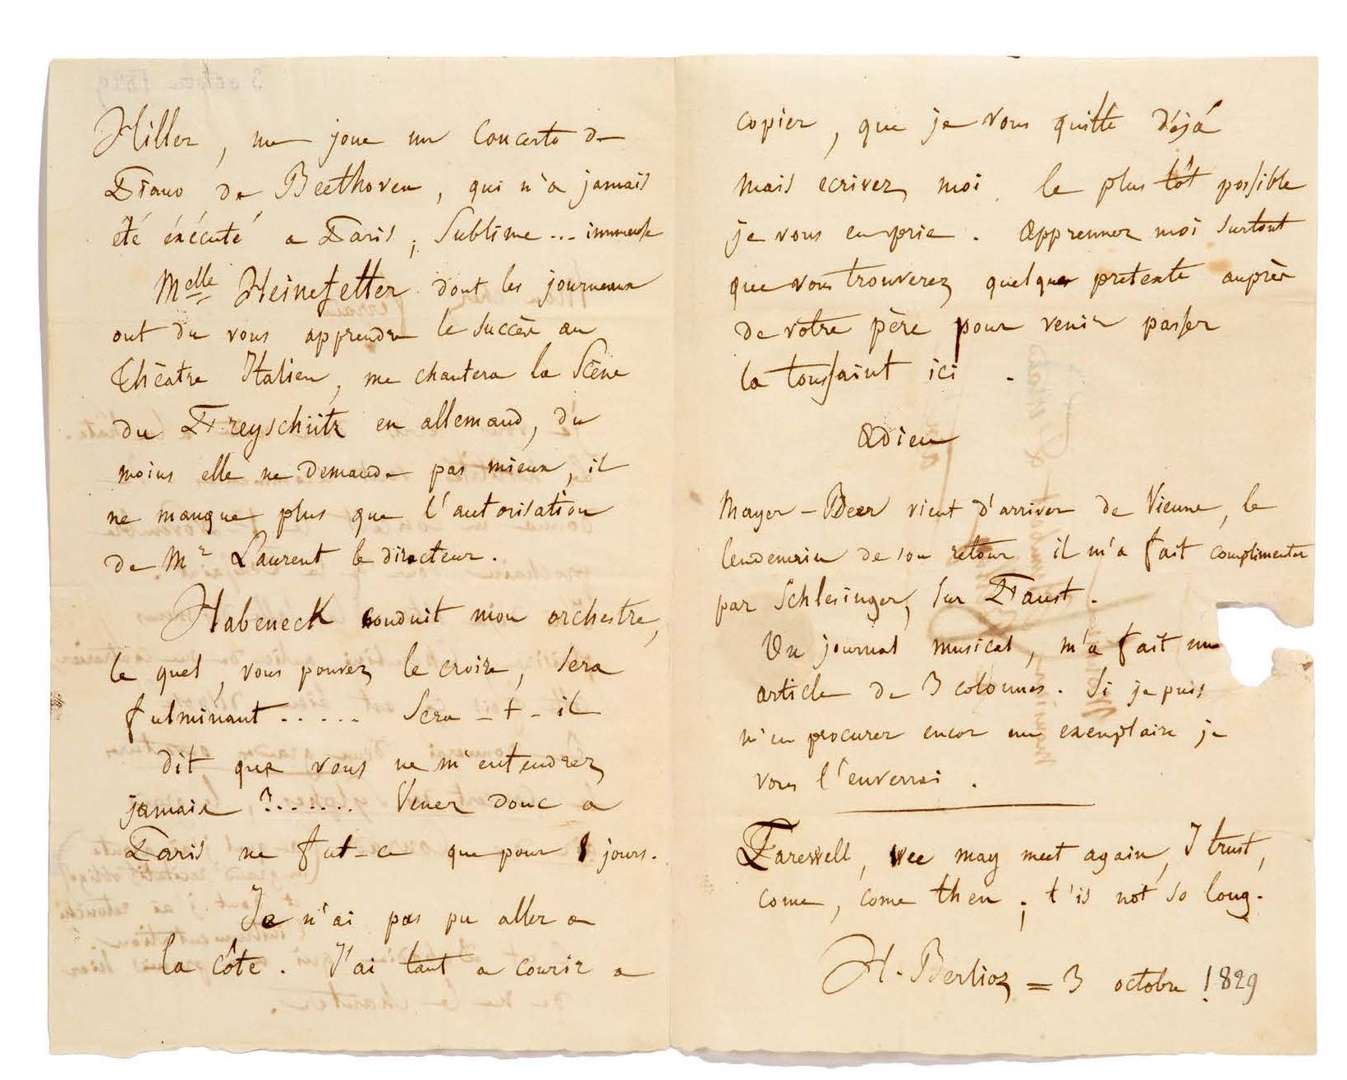 Hiller, me joue un Concerto de
Piano de Beethoven, qui n'a jamais
été éxécuté a Paris; Sublime... immense
Melle Heinefetter dont les journeaux
ont du vous apprendre le succès au
théatre Italien, me chantera la Scène
du Freyschütz en allemand, du
moins elle ne demande pas mieux, il
ne manque plus que l'autorisation
de Mr Laurent le directeur.
Habeneck conduit mon orchestre,
le quel, vous pouvez le croire, sera
fulminant...... Sera-t-il
dit que vous ne m'entendrez
jamais ?...... Venez donc a
Paris ne fut-ce que pour 8 jours.
Je n'ai pas pu aller a
la côte. J'ai tant a courir a
copier, que je vous quitte déjà
mais ecrivez moi le plus tôt possible
je vous en prie. Apprennez moi surtout
que vous trouverez quelque pretexte auprès
de votre père pour venir passer
la toussaint ici.
Adieu
Mayer-Beer vient d'arriver de Vienne, le
lendemain de son retour il m'a fait complimenter
par Schlesinger, sur Faust.
Un journal musical, m'a fait un
article de 3 colonnes. Si je puis
m'en procurer encor un exemplaire je
vous l'enverrai.
Farewell, wee may meet again, I trust,
come, come then; t'is not so long.
H. Berlioz = 3 octobre 1829